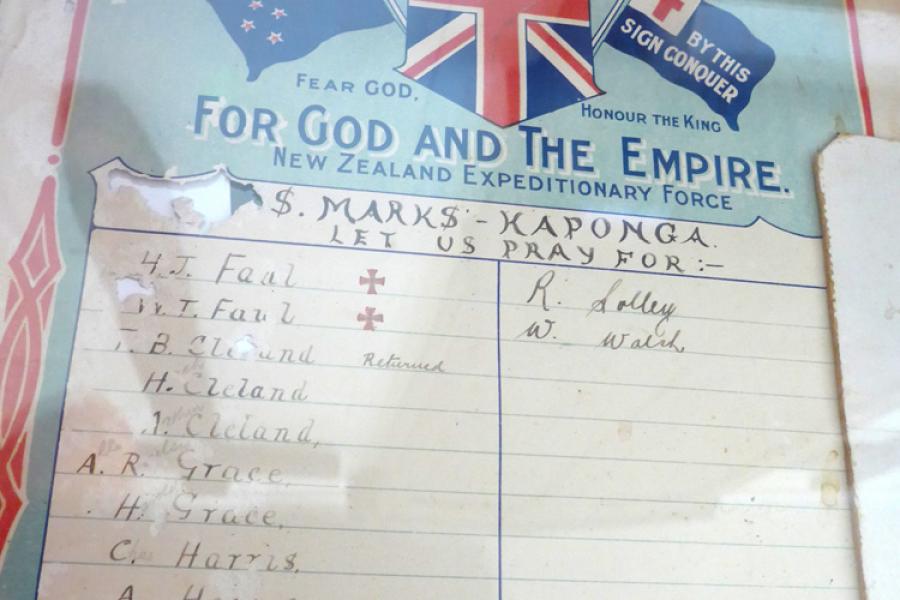 BY THIS
SIGN CONQUER
FEAR GOD,
HONOUR THE KING
FOR GOD AND THE EMPIRE.
NEW ZEALAND EXPEDITIONARY FORCE
S. MARKS - KAPONGA.
LET US PRAY FOR :-
H. J. Faul
W. T. Faul
T. B. Cleland Returned
H. Cleland
J. Cleland,
A. R. Grace,
H. Grace,
C. Harris,
A.
R. Solley
W. Walsh